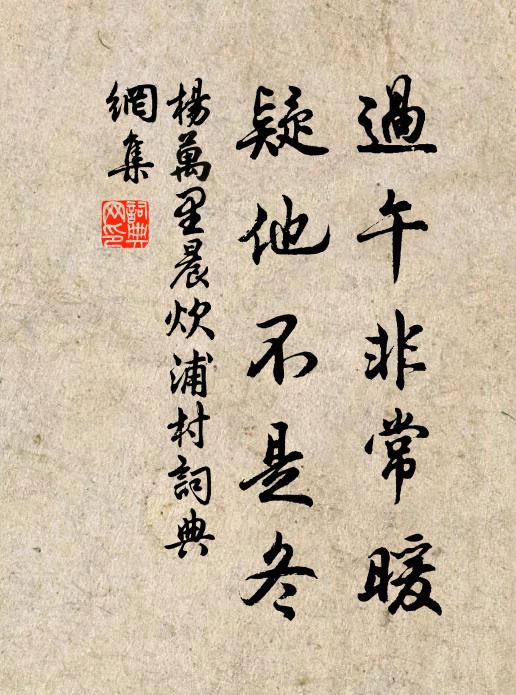 過午非常暖
疑他不是冬
楊萬里晨炊浦村詞典
網集
詞典
网印